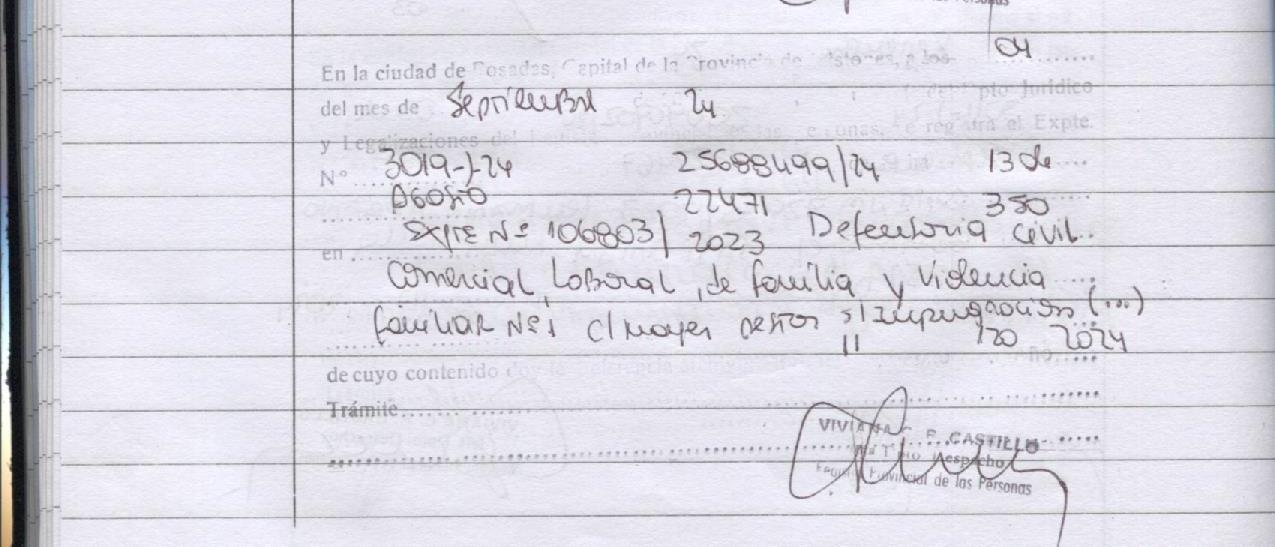 04
En la ciudad de Posadas, Capital de la Provincia de Misiones, a los
del mes de Septiembre 24 Dpto Jurídico
y Legalizaciones del Registro Provincial de las Personas, se registra el Expte.
Nº 3019-J-24 25688499/24 13 de
Agosto 22471 350
en Expte Nº 106803/2023 Defensoria Civil
Comercial, Laboral, de familia y Violencia
familiar Nº1 c/ Mayer Nestor s/ Impugnación (...)
11 /20 2024
de cuyo contenido doy
Trámite
VIVIANA E. CASTILLO
Despacho
Registro Provincial de las Personas